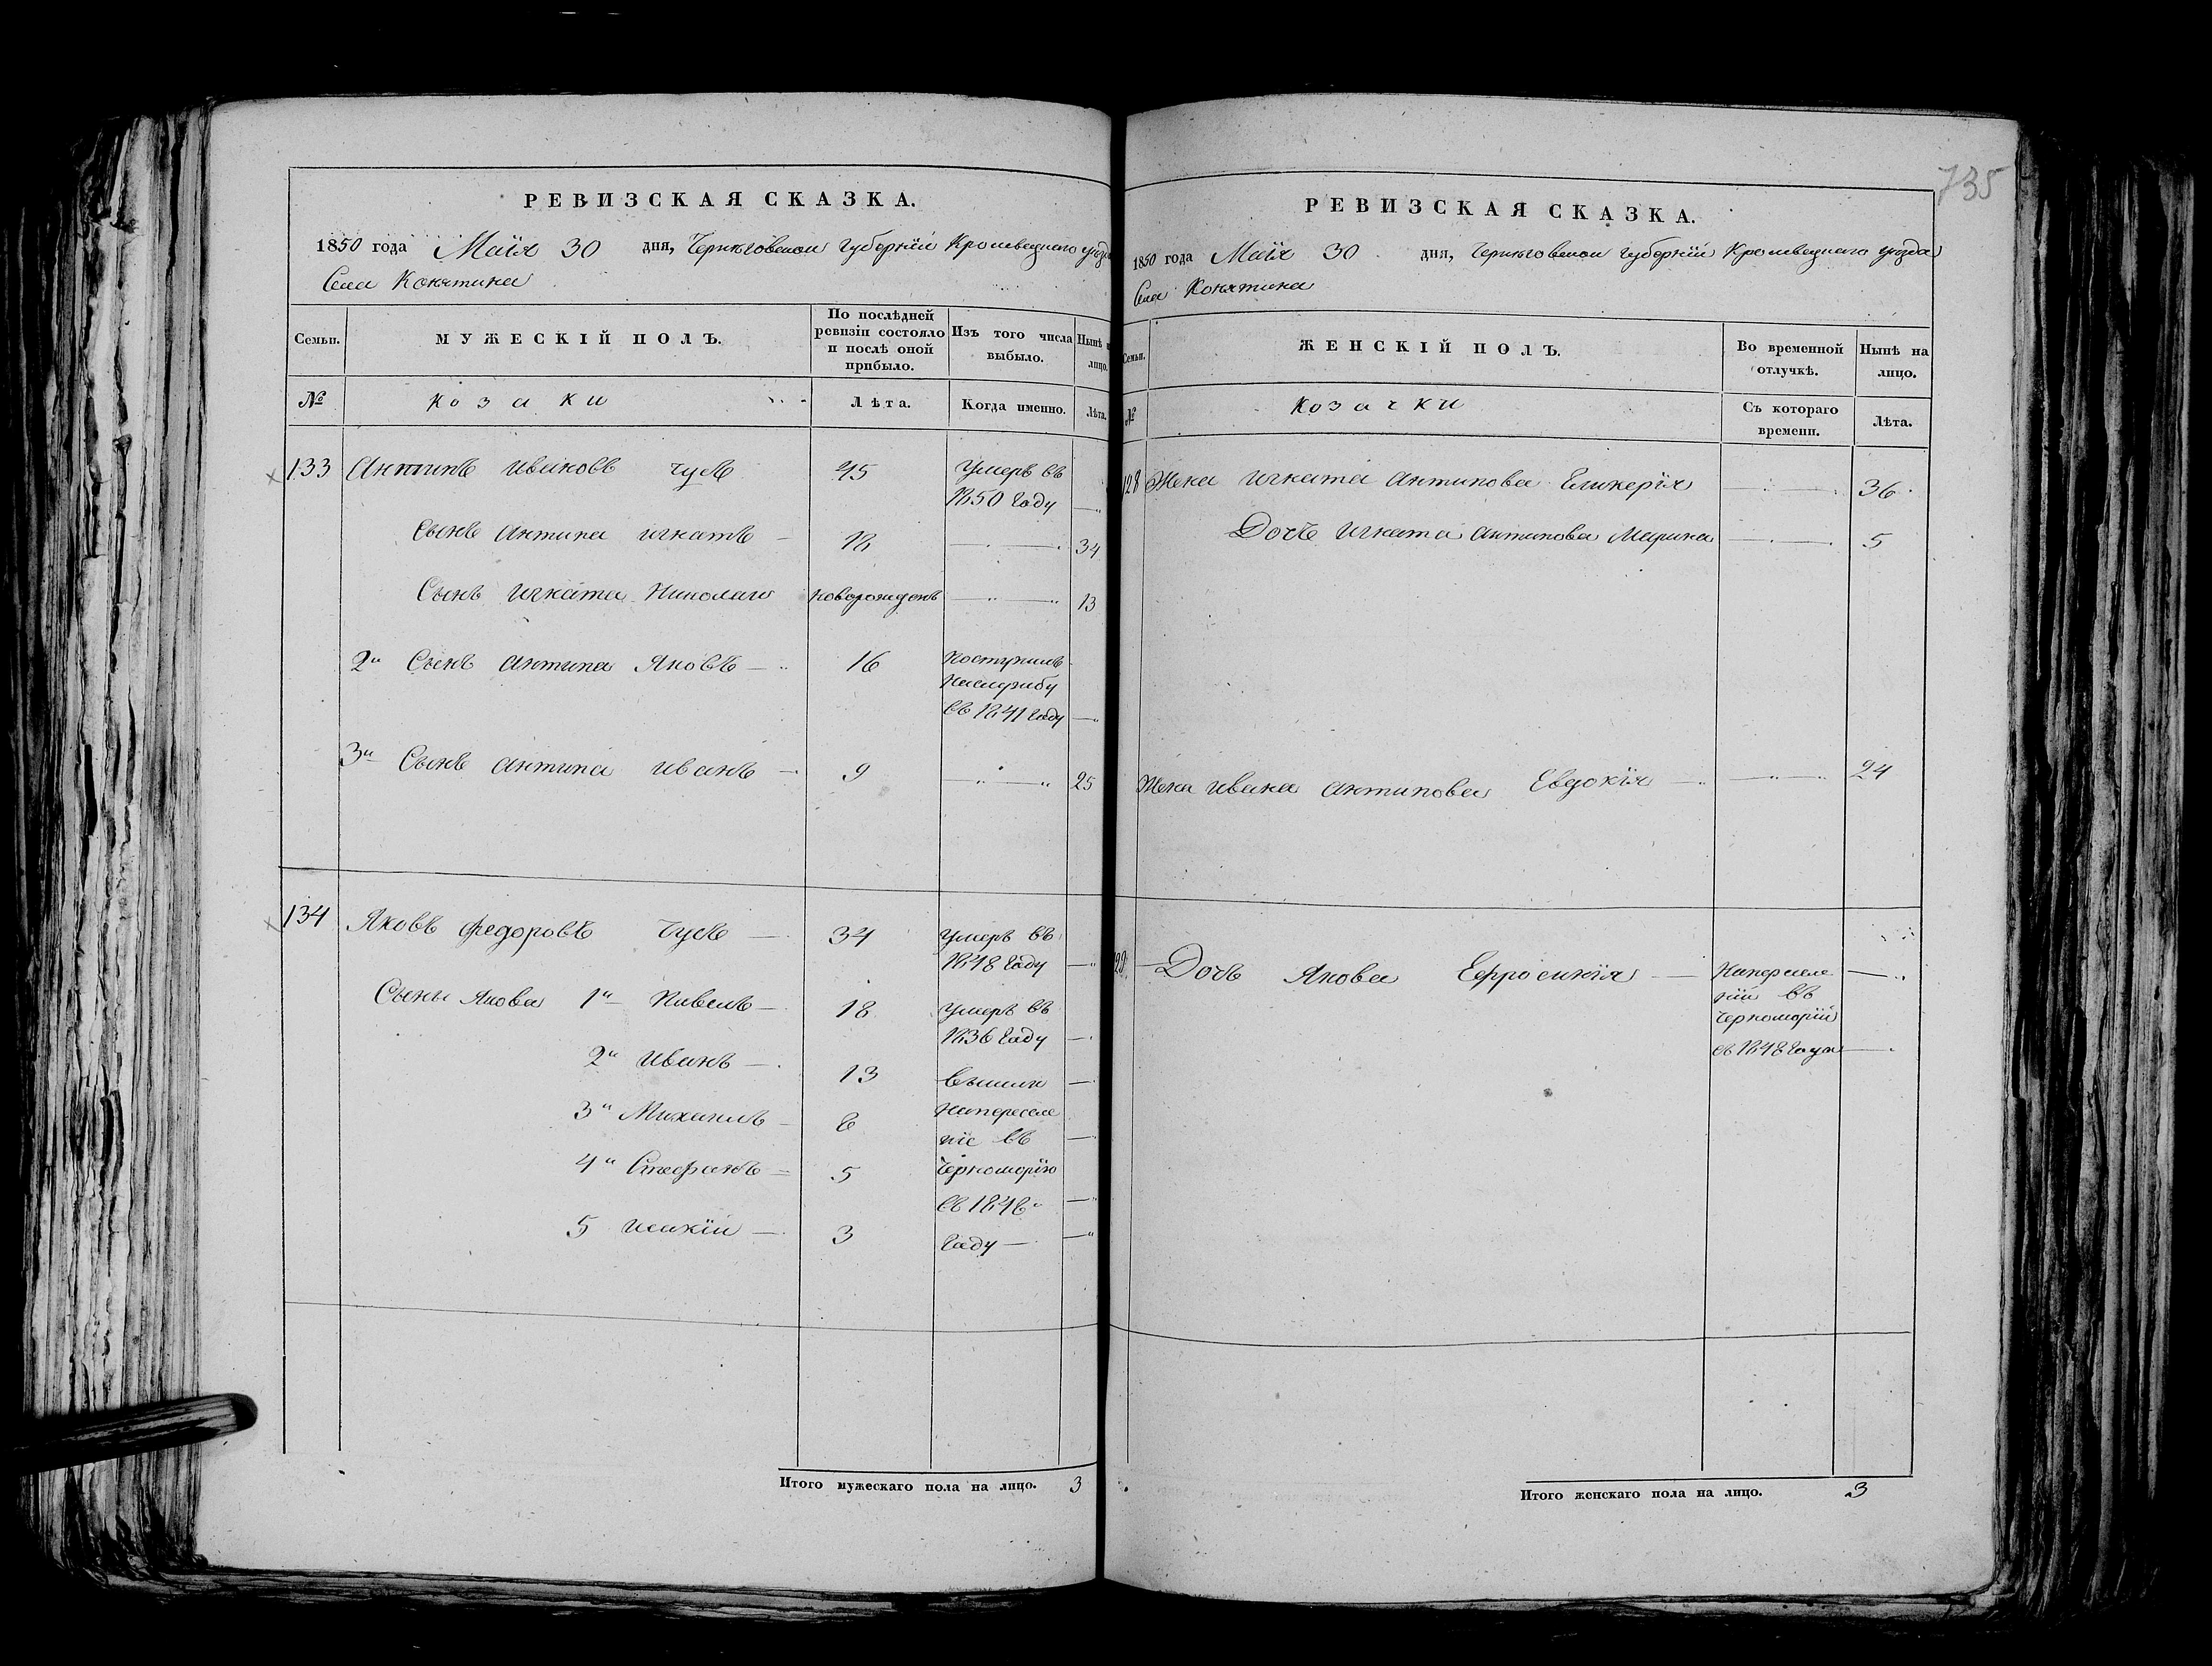 735
РЕВИЗСКАЯ СКАЗКА.
1850 года Маія 30 дня, Черниговской губерніи Кролевецкого уѣзда
Села Конятина
Семьи.
МУЖЕСКІЙ ПОЛЪ.
По послѣдней ревизіи состояло и послѣ оной прибыло.
Изъ того числа выбыло.
Нынѣ на лицо.
№
Козаки
Лѣта.
Когда именно.
Лѣта.
133 Антипъ Ивановъ Чуб 45 Умеръ въ
1850 году —
Сынъ Антипа Игнатъ — 18 — 34
Сынъ Игната Николай новорожденъ — 13
2й Сынъ Антипа Яковъ — 16 Поступилъ
на службу
въ 1841 году —
3й Сынъ Антипа Иванъ — 9 — 25
134 Яковъ Федоровъ — 34 Умеръ въ
1848 году —
Сыны Якова 1й Павелъ — 18 Умеръ въ
1836 году —
2й Иванъ — 13 —
3й Михаилъ — 8 на переселе
ніе въ —
4й Стефанъ — 5 Черноморію
въ 1848 —
5 Исакій — 3 году — —
Итого мужескаго пола на лицо. 3
РЕВИЗСКАЯ СКАЗКА.
1850 года Маія 30 дня, Черниговской губерніи Кролевецкого уѣзда
Села Конятина
Семьи.
ЖЕНСКІЙ ПОЛЪ.
Во временной отлучкѣ.
Нынѣ на лицо.
№
Козачки
Съ котораго времени.
Лѣта.
128 Жена Игната Антипова Гликерія — 36
Дочь Игната Антипова Марина — 5
Жена Ивана Антипова Евдокія — — 24
Дочь Якова Ефросинія — На переселе —
ніи въ
Черноморіи
съ 1848 года —
Итого женскаго пола на лицо. 3